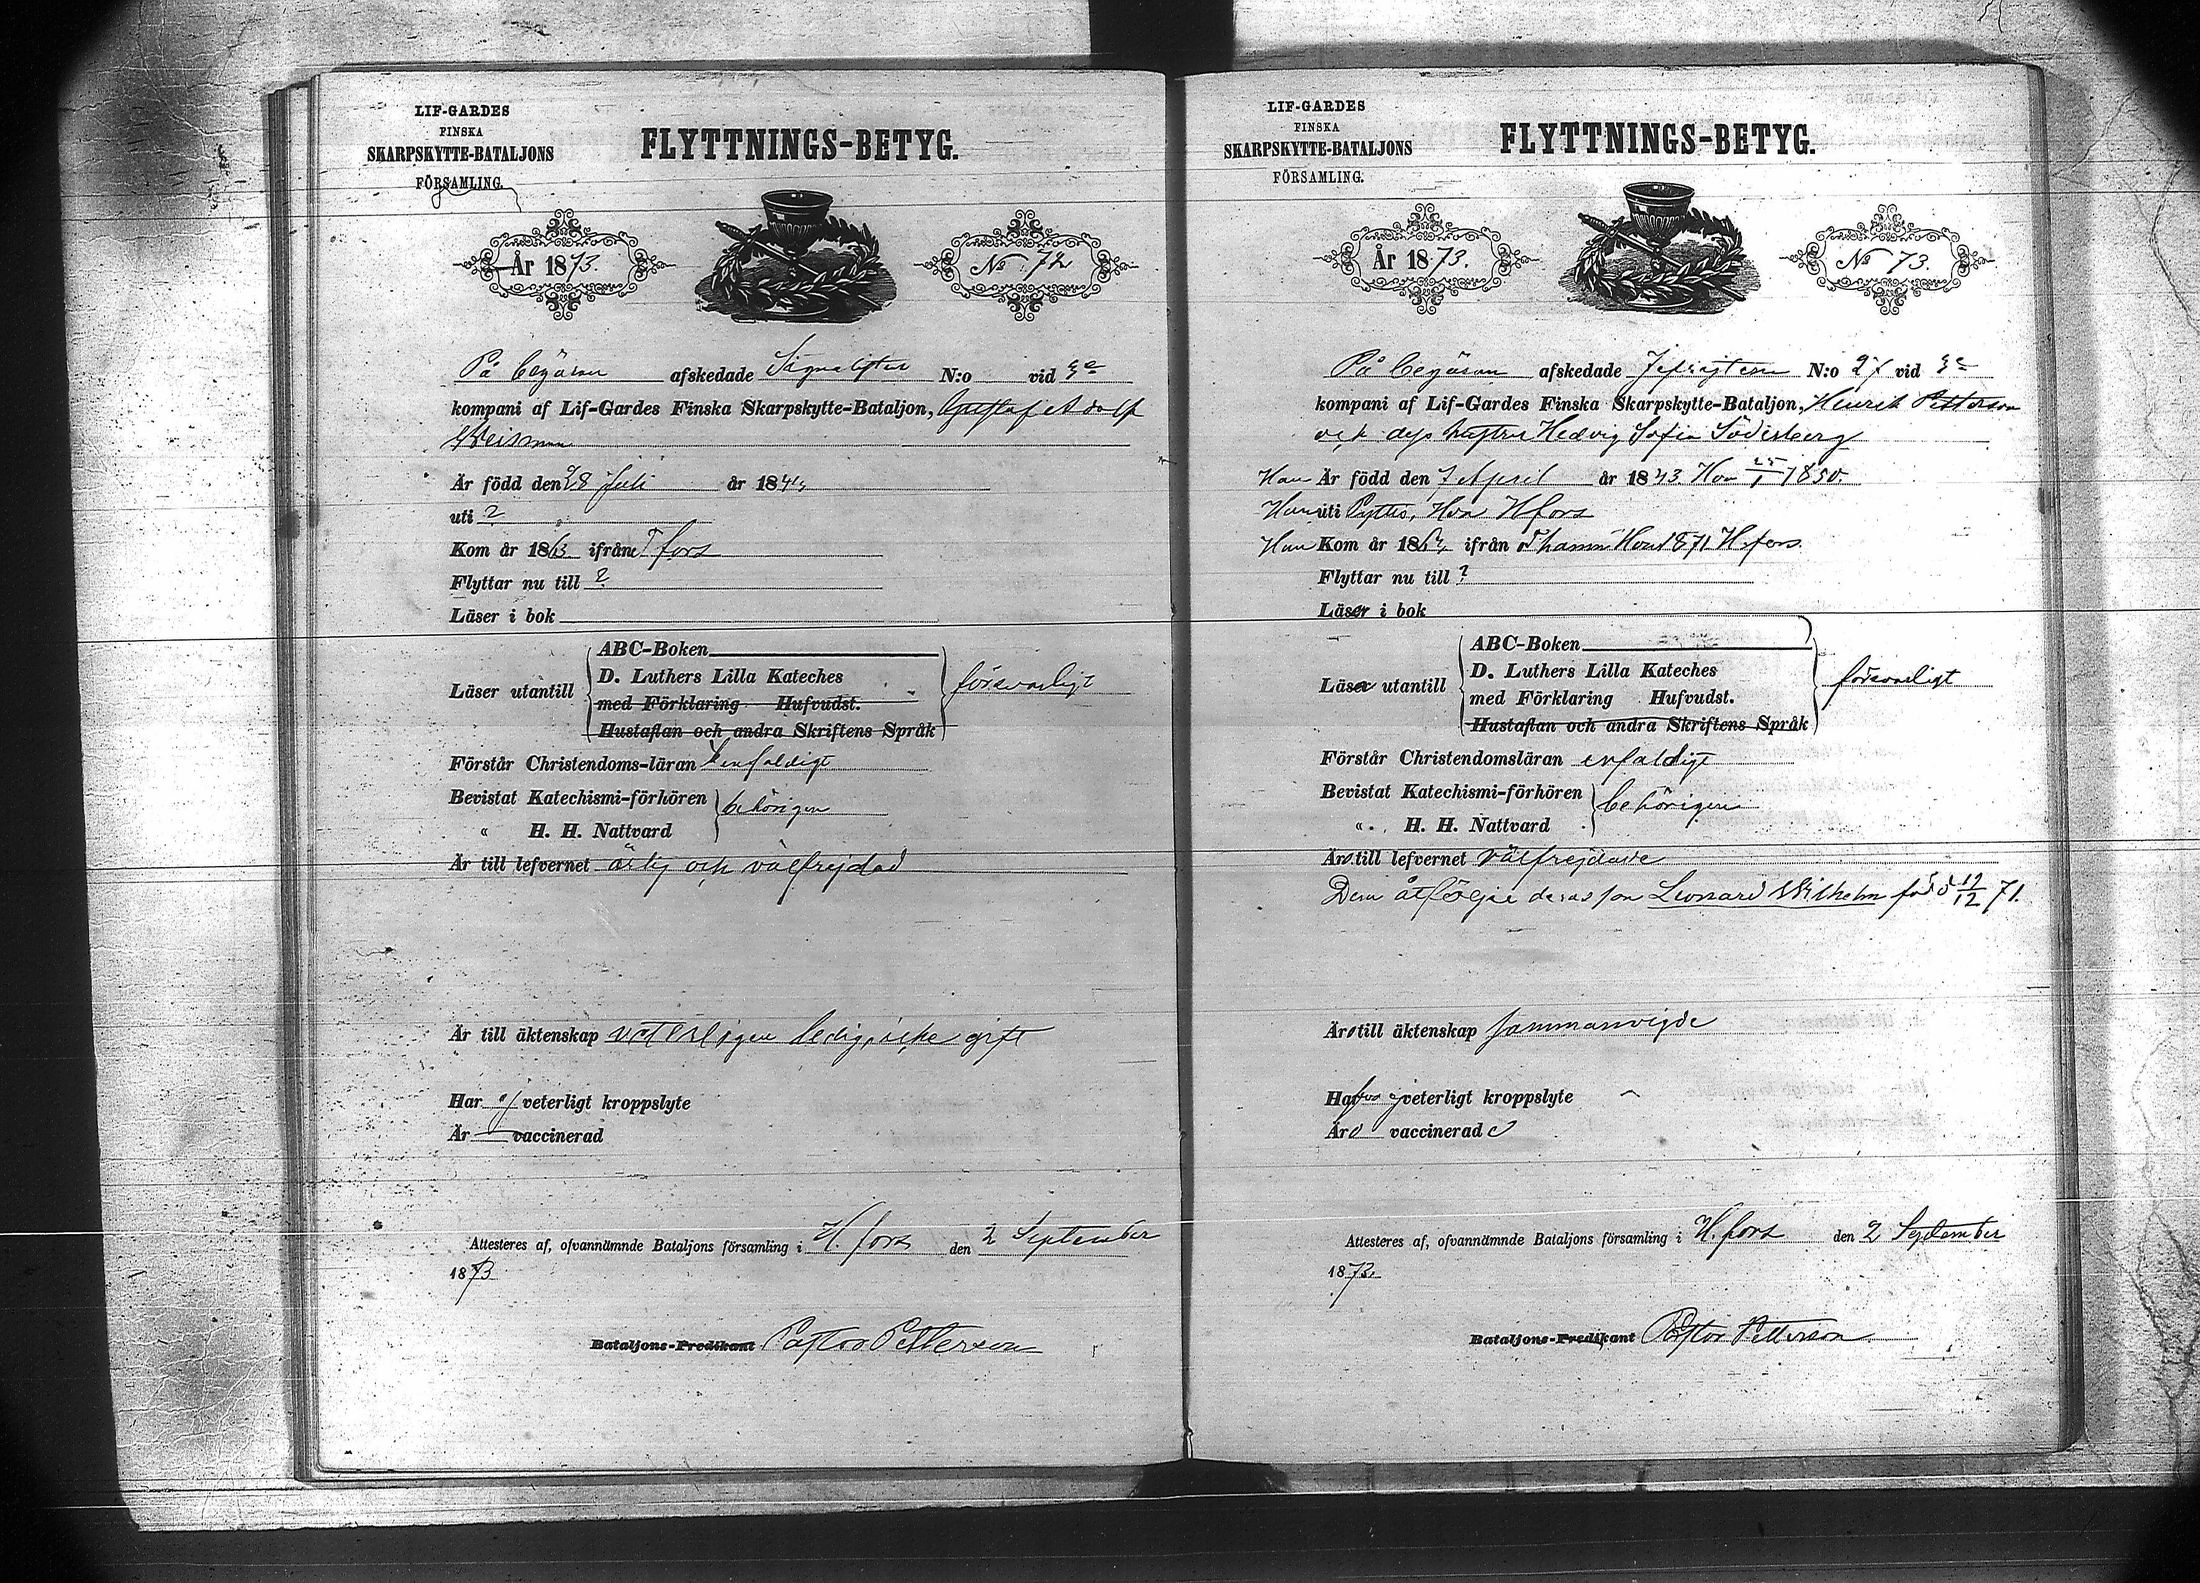 LIF-GARDES
FINSKA
SKARPSKYTTE-BATALJONS
FÖRSAMLING.
FLYTTNINGS-BETYG.
År 1873.
No 72
På begäran afskedade Signalisten N:o vid 3e
kompani af Lif-Gardes Finska Skarpskytte-Bataljon, Gustaf Adolf
Weisman
Är född den 28 Juli år 184
uti ?
Kom år 1863 ifrån Tfors
Flyttar nu till ?
Läser i bok
Läser utantill
ABC-Boken
D. Luthers Lilla Kateches
med Förklaring Hufvudst.
Hustaflan och andra Skriftens Språk
försvarligt
Förstår Christendoms-läran enfaldigt
Bevistat Katechismi-förhören
" H. H. Nattvard
behörigen
Är till lefvernet ärlig och välfrejdad
Är till äktenskap veterligen ledig, icke gift
Har ej veterligt kroppslyte
Är vaccinerad
Attesteres af, ofvannämnde Bataljons församling i H.fors den 2 September
1873
Bataljons-Predikant Pastor Petterson
LIF-GARDES
FINSKA
SKARPSKYTTE-BATALJONS
FÖRSAMLING.
FLYTTNINGS-BETYG.
År 1873.
No 73.
På begäran afskedade N:o 27 vid 3e
kompani af Lif-Gardes Finska Skarpskytte-Bataljon, Henrik Petterson
och dess hustru Hedvig Sofia Söderberg
Han Är född den 7 April år 1843. Hon 25/1 1850.
Han uti Pyttis, Hon Hfors
Han Kom år 186 ifrån Hon 1871 H.fors.
Flyttar nu till ?
Läsa i bok
Läsa utantill
ABC-Boken
D. Luthers Lilla Kateches
med Förklaring Hufvudst.
Hustaflan och andra Skriftens Språk
försvarligt
Förstår Christendomsläran enfaldigt
Bevistat Katechismi-förhören
" H. H. Nattvard
behörigen
Äro till lefvernet välfrejdade
Dem åtföljer deras son Leonard Wilhelm född 12/12 71.
Äro till äktenskap sammanvigde
Hafva ej veterligt kroppslyte
Äro vaccinerade
Attesteres af, ofvannämnde Bataljons församling i H.fors den 2 September
1873.
Bataljons-Predikant Pastor Petterson